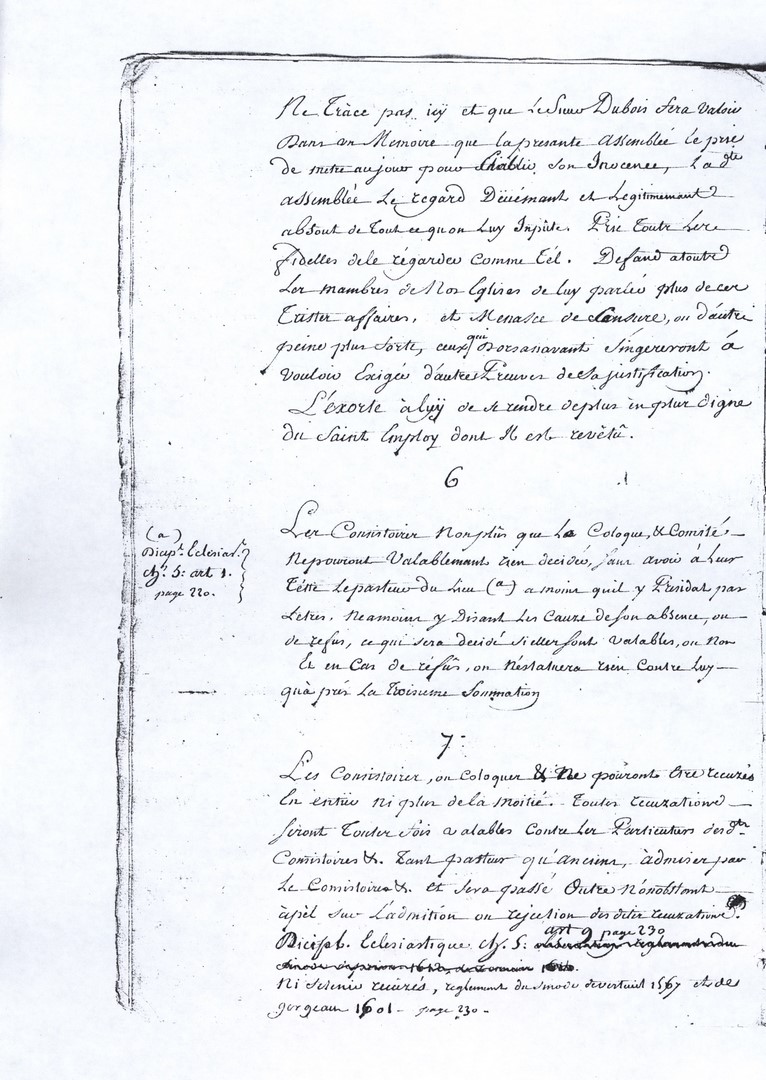 Ne Tràce pas icÿ et que Le Sieur Dubois fera Valoir
Dans un Memoire que la presante assemblée le prie
de metre au jour pour Etablir son Inocence, La dte
assemblée Le regard Décémant et Legitimemant
absout de Tout ce qu on Luy Inpûte. Prie Toute Les
fidelles de le régarder comme Tél. Defand a toutes
Les mambres de Nos Eglises de luy parler plus de ces
Tristes affaires, et Menasse de Censure, ou d'autre
peine plus forte, ceux qui Dorsanavant s'ingereront á
Vouloir Exigér d'autres Preuves de sa justification.
L'éxorte à luÿ de se rendre de plus en plus digne
du Saint Employ dont Il est revêtû.
6
Les Consistoires Non plûs que Le Coloque, & Comité
Ne pouront Valablemant rien decider, sans avoir à Leur
Téste Le pasteur du Lieu (a) a moins quil y Présidat par
Létres. Neamoins y Disant Les Cauze de son absence, ou
de refus, ce qui sera decidé si elles sont valables, ou Non
Et en Cas de réfûs, on Néstatuera rien Contre Luy
qu'à prés La troisieme Sommation
(a)
Dicipe Eclésias.
ch. 5: art 1.
page 220.
7:
Les Consistoires, ou Coloques & Ne pouront être recuzés
En entier ni plus de là moitié. Toutes recuzations
seront Toutes fois valables Contre Les Particuliers des dts
Consistoires &. Tant pasteur qu'anciens, àdmises par
Le Consistoires &. et sera passé Outre Nonobstant
àpél sur L'admition ou rejection des dites recuzations.
Dicipl. Eclesiastique ch. 5: art 9 page 230
Ni se tenir recuzés, reglement du sinode de vertueil 1567 et de
gergeaux 1601 - page 230 -